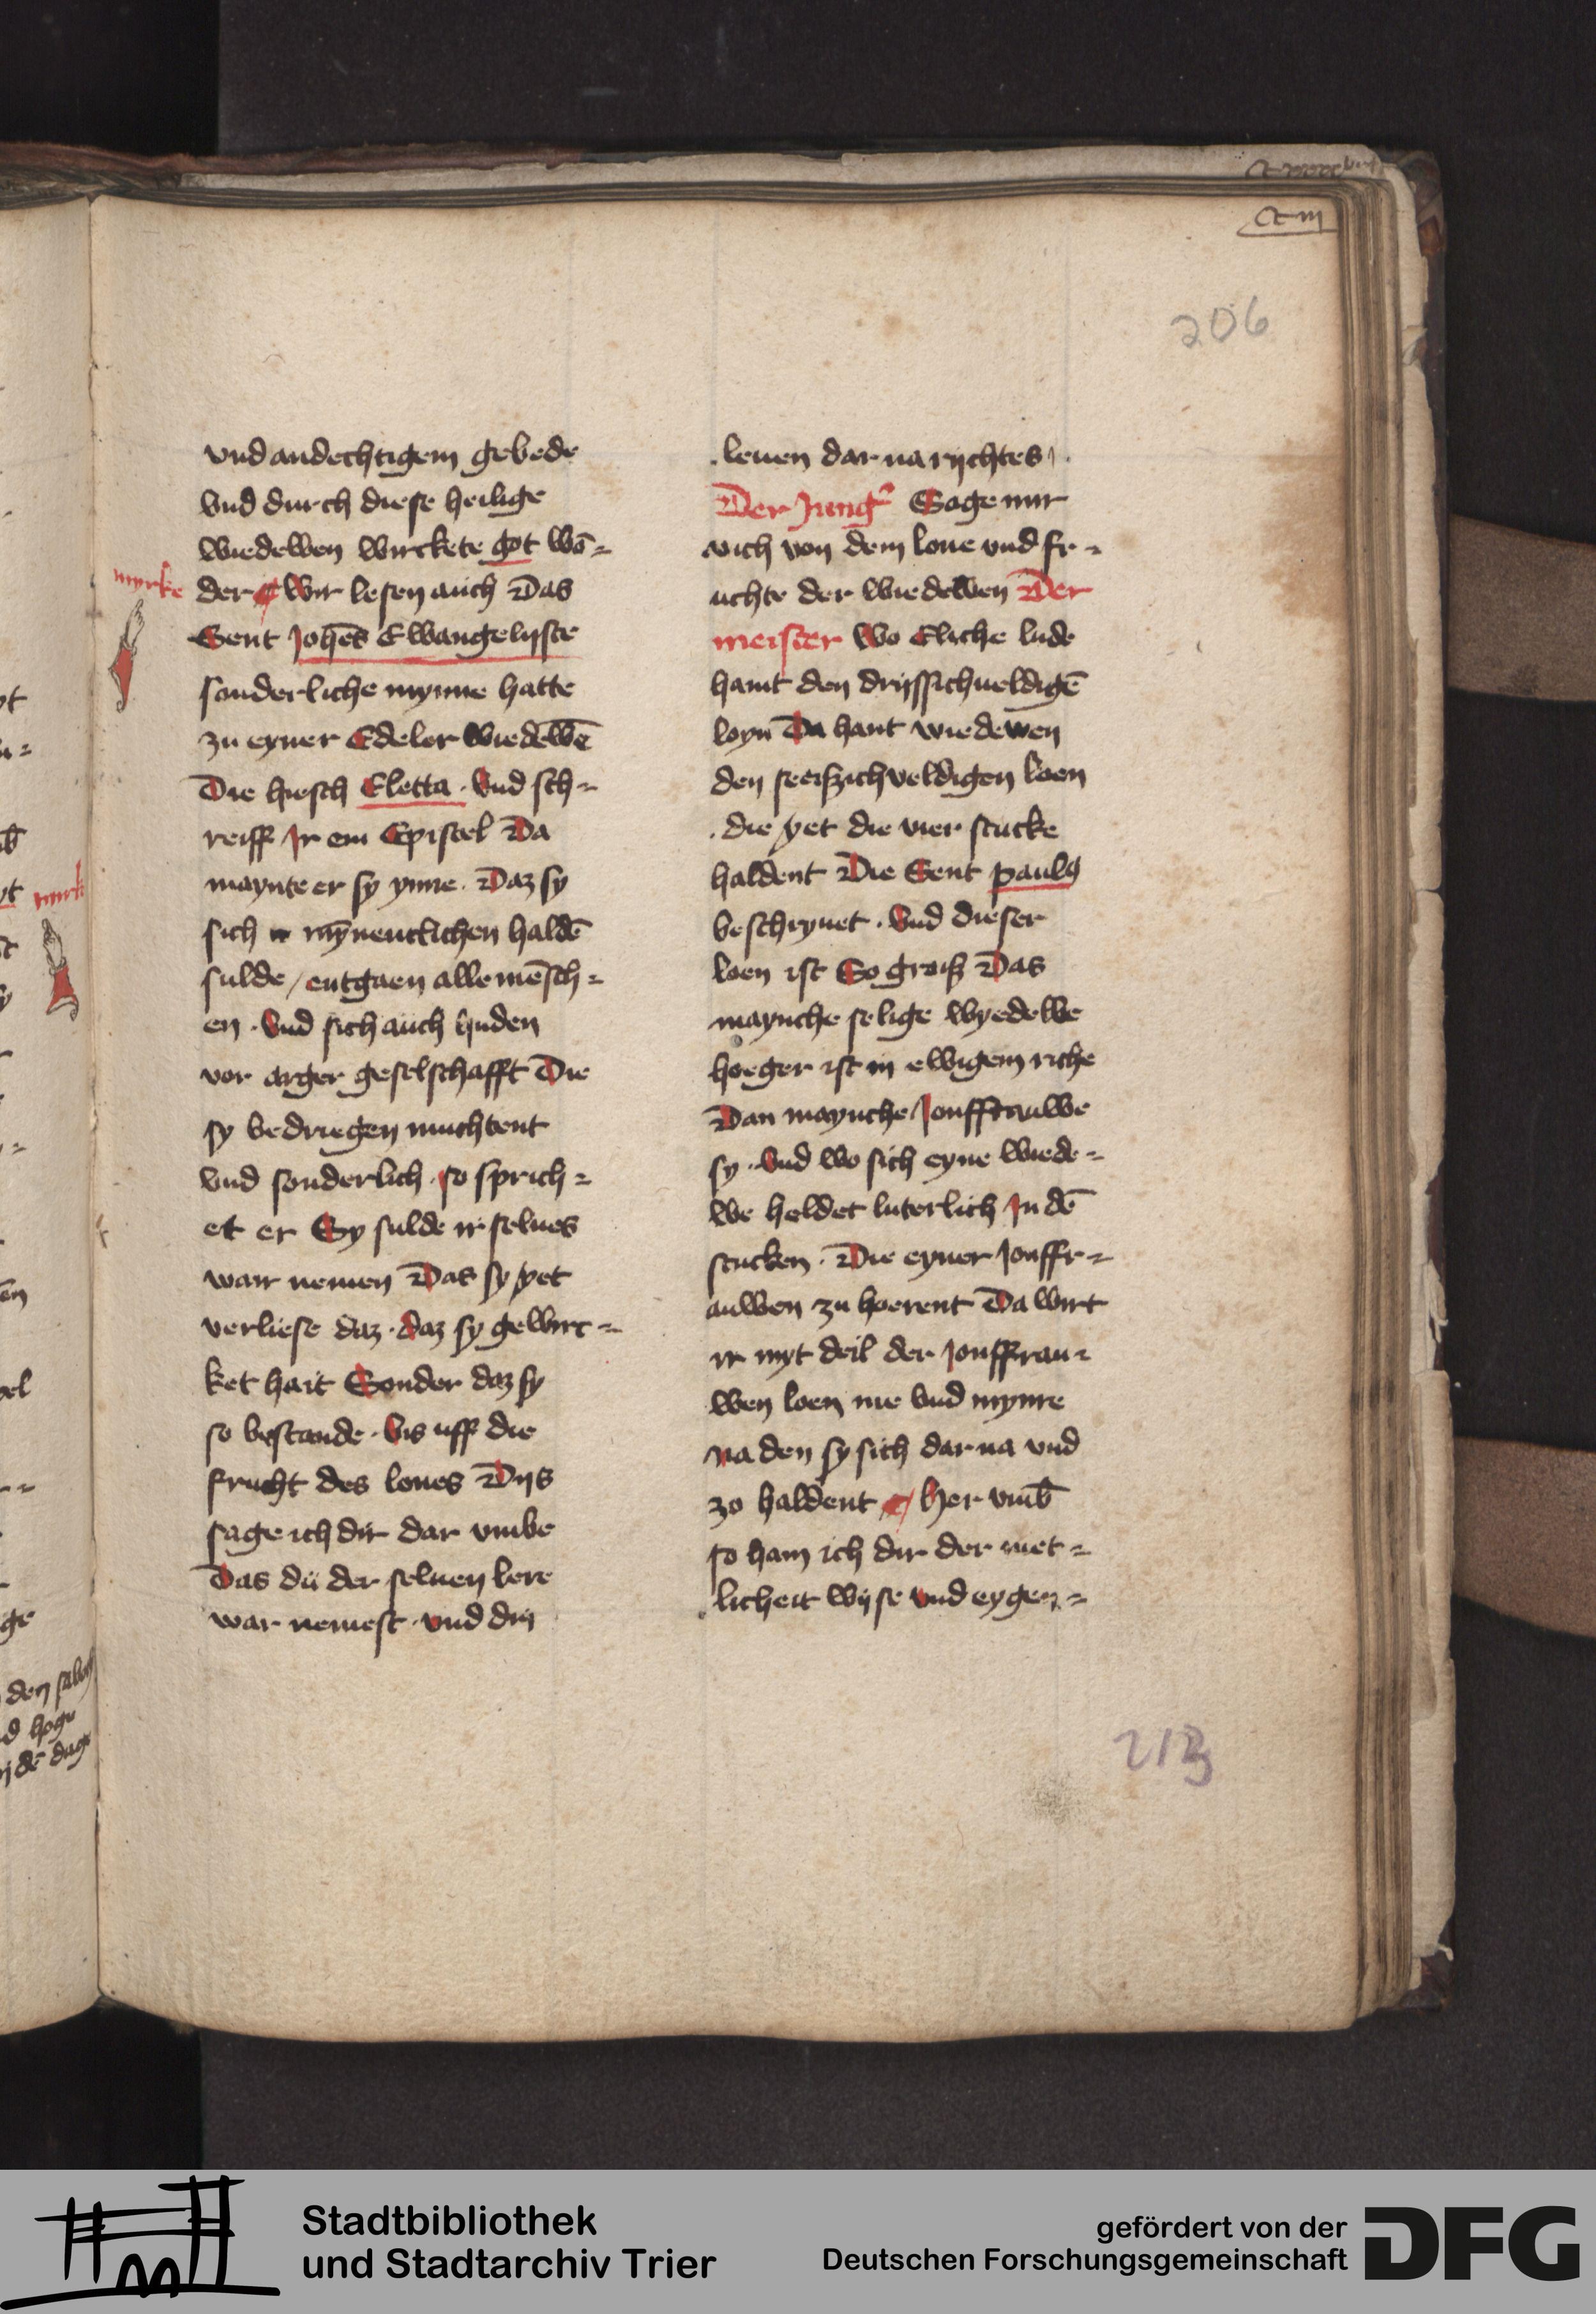 C iij
206
vnd andechtigem gebede
vnd durch diese heilige
wiedewen wirckete got wō=
myrke
der wir lesen auch Das
Sent Johēs Ewangelijste
sonderliche mynne hatte
zu eyner Edeler wiedewē
Die hiesch Eletta · vnd sch=
reiff Jr ein Epistel Da
maynte er sy ynne · Daz sy
sich mȳnentlichen haldē
sulde / entgaen alle mēsch=
en · vnd sich auch huden
vor arger geselschafft Die
sy bedriegen muchtent
vnd sonderlich · so sprich=
et er Sy sulde ir selues
wair nemen Das sy yet
verliese daz · daz sy gewirc=
ket hait Sonder daz sy
so bestande · bis uff die
frucht des loues Dijs
sage ich dir dar vmbe
Das dü der seluen lere
war nemest · vnd din
leuen dar na rijchtes ·
Der Jung Sage mir
auch von dem lone vnd fr=
uchte der wiedewen Der
meister Wo Eliche lude
hant den drijssichueldigē
loyn Da hant wiedewen
den seeiszichveldigen loen
· die yet die vier stucke
haldent Die Sent paulus
beschryuet · vnd dieser
loen ist So groisz Das
maynche selige wyedewe
hoeger ist in ewigem riche
Dan maynche Jonffrauwe
sy · vnd wo sich eyne wiede=
we heldet luterlich Jn dē
stucken · Die eyner Jonffr=
auwen zu hoerent Da wirt
ir myt deil der Jonffrau=
wen loen me vnd mynre
na den sy sich dar na vnd
zo haldent her vmb
so hain ich dir der met=
licheit wijse vnd eygen=
213
Stadtbibliothek
und Stadtarchiv Trier
gefördert von der
Deutschen Forschungsgemeinschaft
DFG